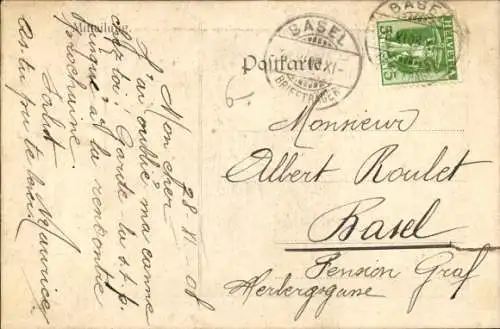 Mitteilung.
Postkarte
BASEL
XI-
BRIEFTRÄGER
BASEL
HELVETIA
5 5
28 XI - 08
Mon cher
J'ai oublié ma canne
chez toi! Garde-la s.t.p.
jusqu'à la rencontre
prochaine.
Salut
Maurice
As-tu
Monsieur
Albert Roulet
Basel
Pension Graf
Herbergsgasse